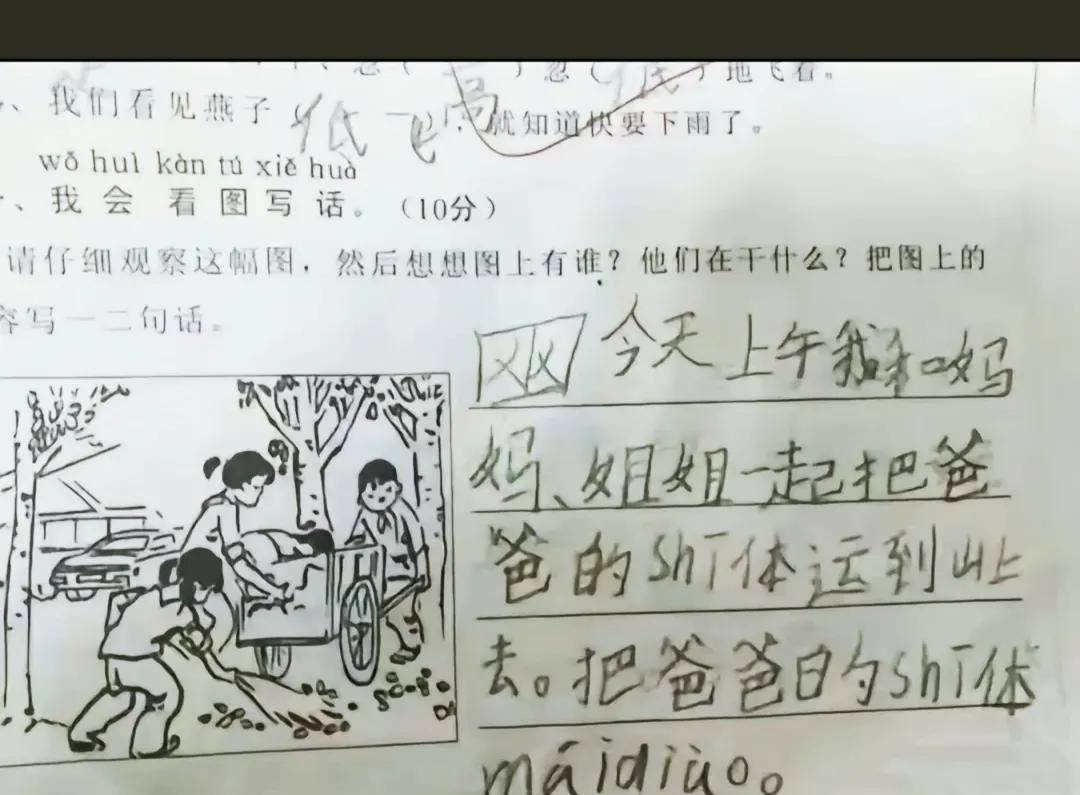 忽（低）地飞着。
、我们看见燕子（低飞高），就知道快要下雨了。
wǒ huì kàn tú xiě huà
、我会看图写话。（10分）
请仔细观察这幅图，然后想想图上有谁？他们在干什么？把图上的
容写一二句话。
今天上午我和妈
妈、姐姐一起把爸
爸的shī体运到山上
去。把爸爸的shī体
máidiào。